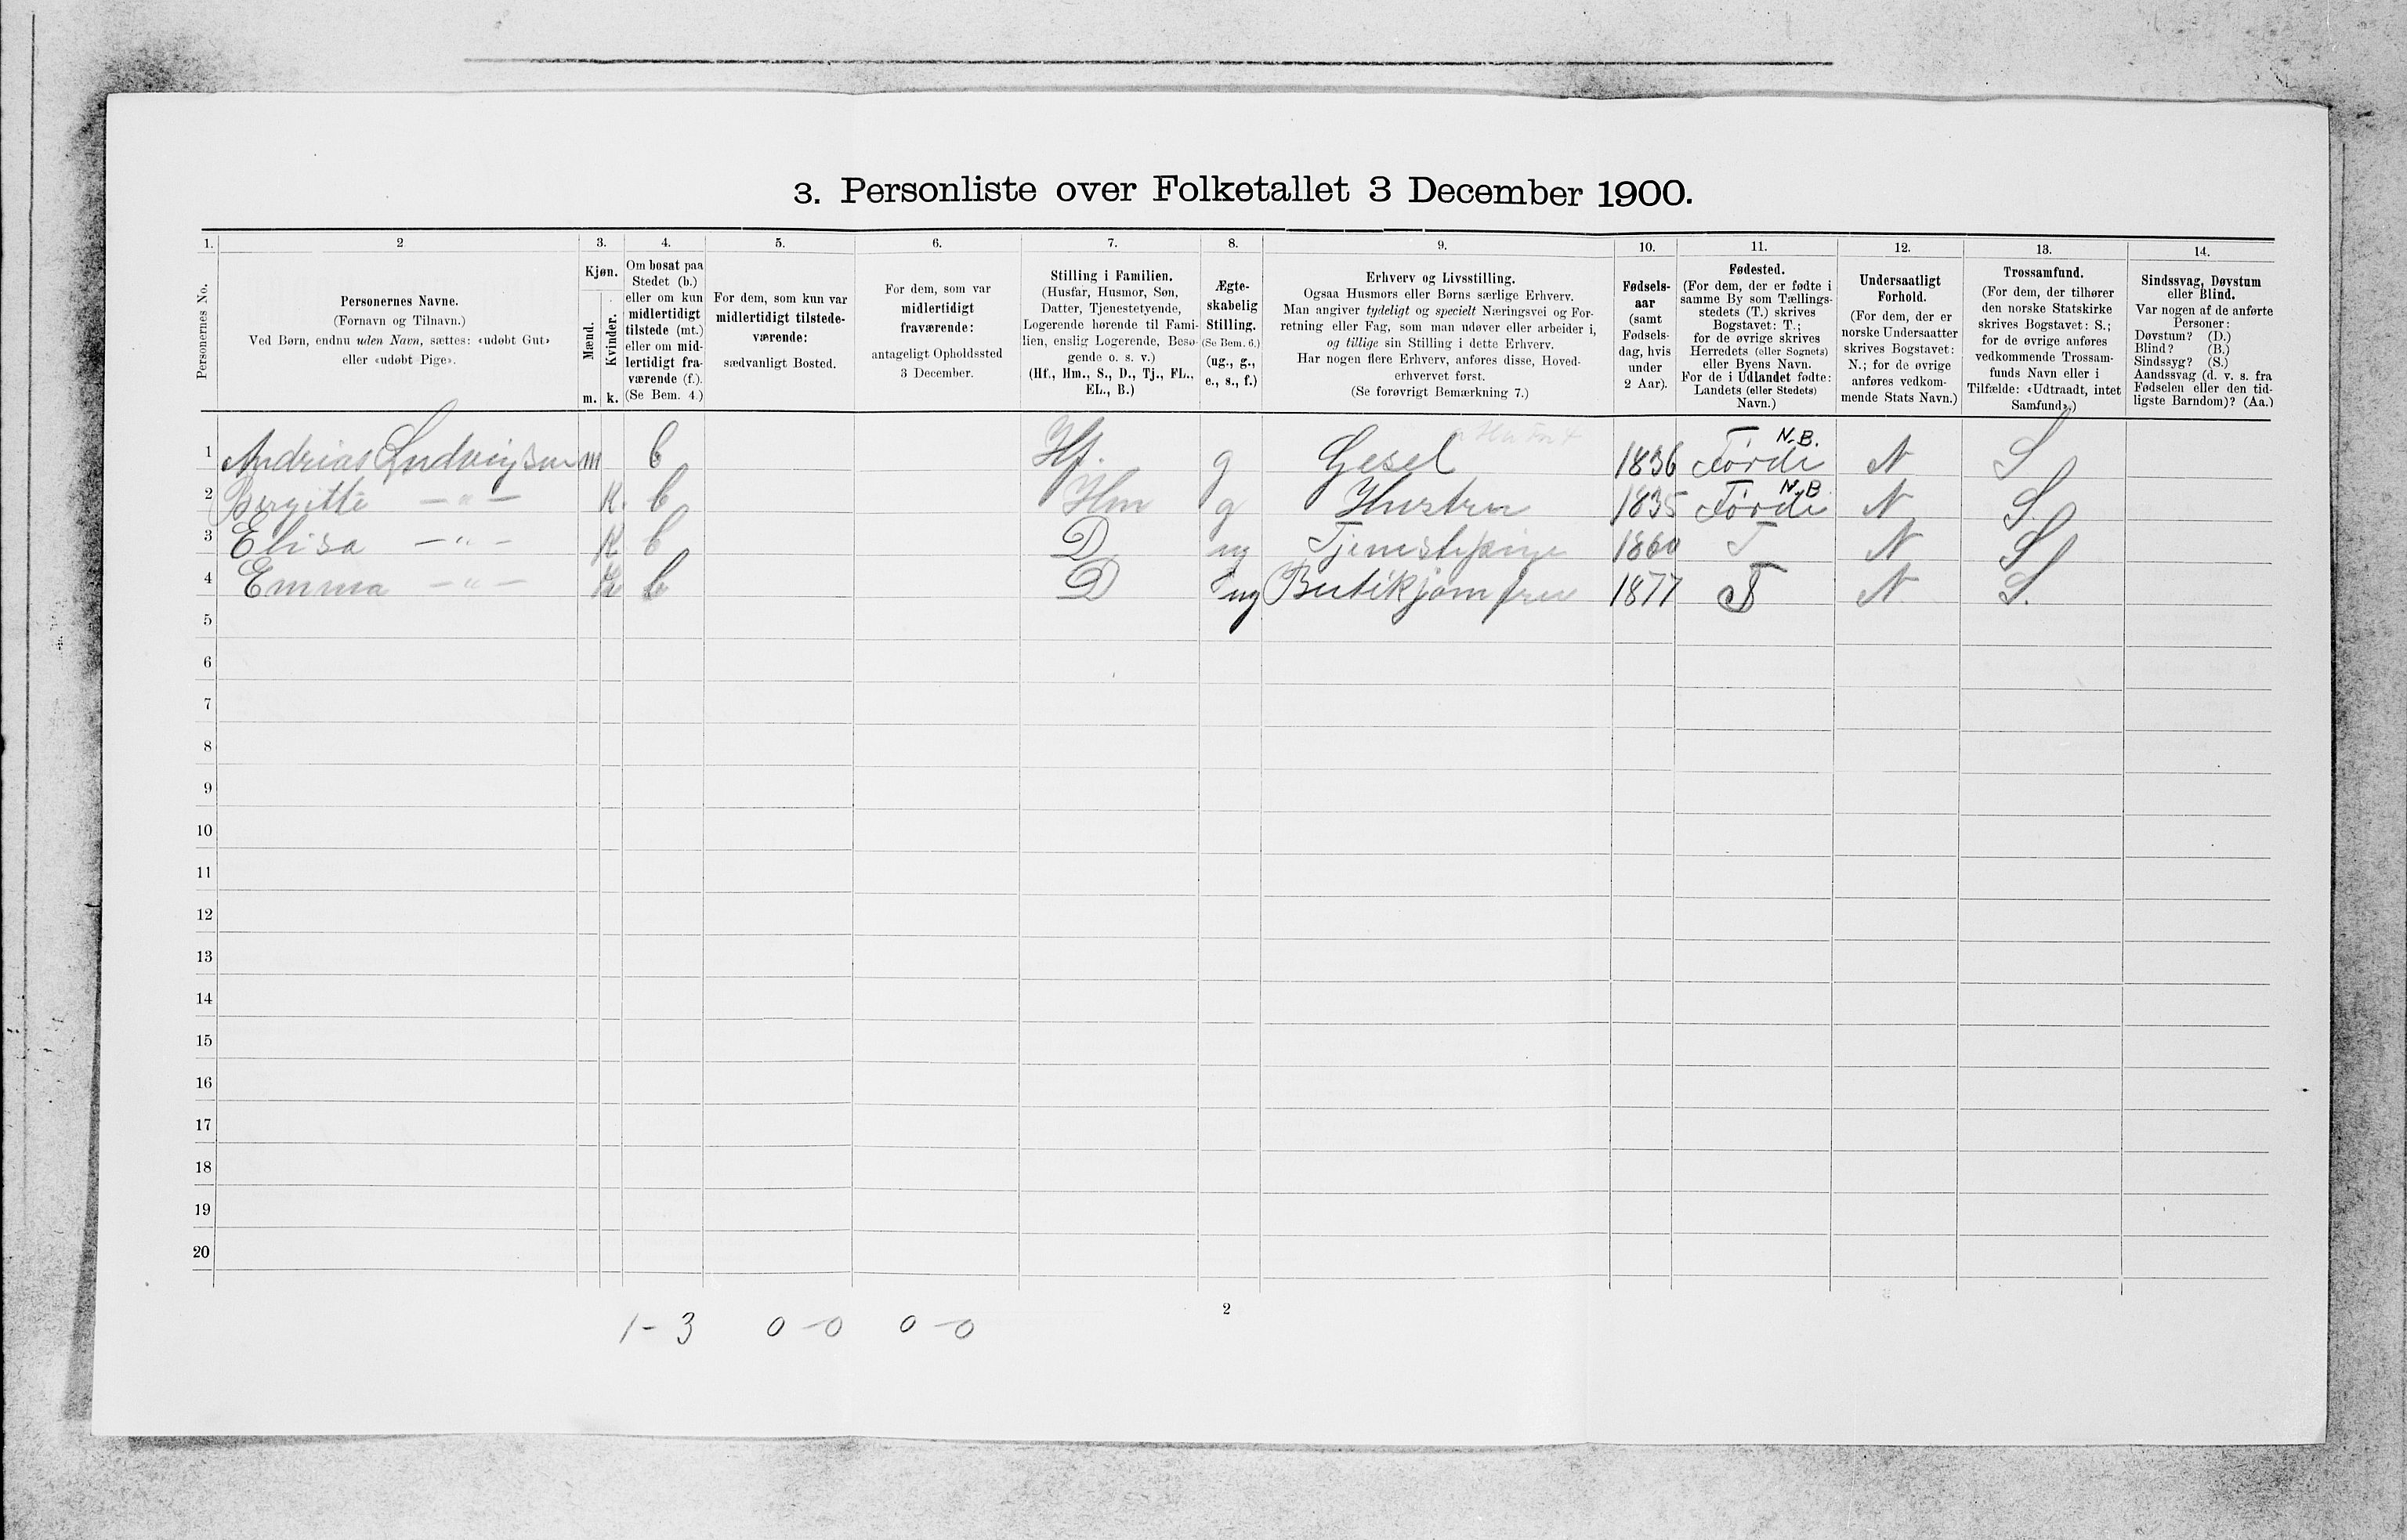 3. Personliste over Folketallet 3 December 1900.
1. 2 3. 4. 5. 6. 7. 8. 9. 10. 11. 12. 13. 14.
Personernes No.
Personernes Navne.
(Fornavn og Tilnavn.)
Ved Børn, endnu uden Navn, sættes: «udøbt Gut»
eller «udøbt Pige».
Kjøn.
Mænd.
Kvinder.
m. k.
Om bosat paa
Stedet (b.)
eller om kun
midlertidigt
tilstede (mt.)
eller om mid-
lertidigt fra-
værende (f.).
(Se Bem. 4.)
For dem, som kun var
midlertidigt tilstede-
værende:
sædvanligt Bosted.
For dem, som var
midlertidigt
fraværende:
antageligt Opholdssted
3 December.
Stilling i Familien.
(Husfar, Husmor, Søn,
Datter, Tjenestetyende,
Logerende hørende til Fami-
lien, enslig Logerende, Besø-
gende o. s. v.)
(Hf., Hm., S., D., Tj., FL.,
EL., B.)
Ægte-
skabelig
Stilling.
(Se Bem. 6.)
(ug., g.,
e., s., f.)
Erhverv og Livsstilling.
Ogsaa Husmors eller Børns særlige Erhverv.
Man angiver tydeligt og specielt Næringsvei og For-
retning eller Fag, som man udøver eller arbeider i,
og tillige sin Stilling i dette Erhverv.
Har nogen flere Erhverv, anføres disse, Hoved-
erhvervet først.
(Se forøvrigt Bemærkning 7.)
Fødsels-
aar
(samt
Fødsels-
dag, hvis
under
2 Aar).
Fødested.
(For dem, der er fødte i
samme By som Tællings-
stedets (T.) skrives
Bogstavet: T.;
for de øvrige skrives
Herredets (eller Sognets)
eller Byens Navn.
For de i Udlandet fødte:
Landets (eller Stedets)
Navn.)
Undersaatligt
Forhold.
(For dem, der er
norske Undersaatter
skrives Bogstavet:
N.; for de øvrige
anføres vedkom-
mende Stats Navn.)
Trossamfund.
(For dem, der tilhører
den norske Statskirke
skrives Bogstavet: S.;
for de øvrige anføres
vedkommende Trossam-
funds Navn eller i
Tilfælde: «Udtraadt, intet
Samfund».)
Sindssvag, Døvstum
eller Blind.
Var nogen af de anførte
Personer:
Døvstum? (D.)
Blind? (B.)
Sindssyg? (S.)
Aandssvag (d. v. s. fra
Fødselen eller den tid-
ligste Barndom)? (Aa.)
1 Andrias Ludvigsen m b Hf. g Gesel 1836 Førde N.B. N S
2 Bergitte —"— K. b Hm g Hustru 1835 Førde N.B N S.
3 Elisa —"— K b D ug Tjenestepige 1860 T N S
4 Emma —"— K b D ug Butikjomfru 1877 T N. S.
5
6
7
8
9
10
11
12
13
14
15
16
17
18
19
20
2
1-3 0-0 0-0